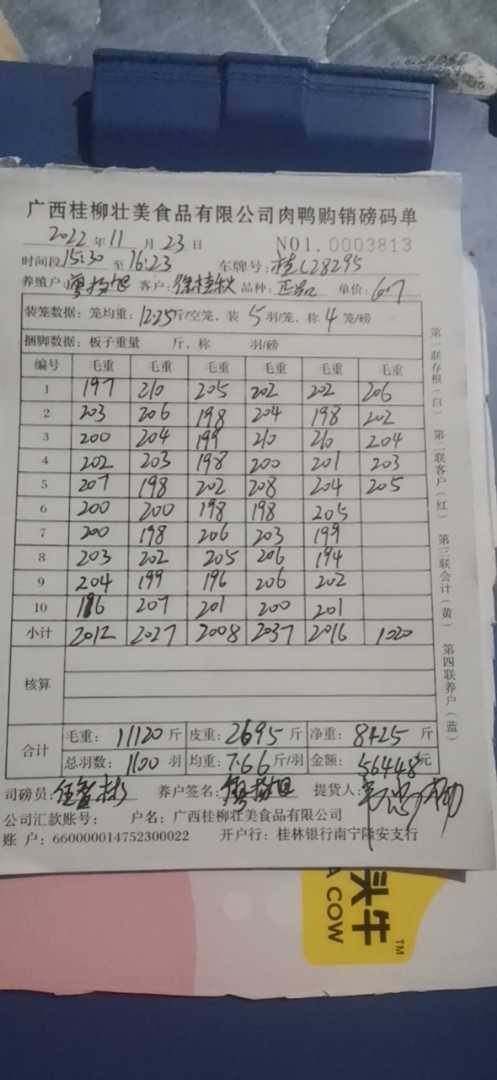 广西桂柳壮美食品有限公司肉鸭购销磅码单
2022年11月23日 NO1.0003813
时间段15:30至16:23 车牌号:桂C28295
养殖户: 客户:徐桂秋 品种:正品 单价:6.7
装笼数据:笼均重:12.25斤/空笼,装5羽/笼,称4笼/磅
捆脚数据:板子重量 斤,称 羽/磅
编号 毛重 毛重 毛重 毛重 毛重 毛重
1 197 210 205 202 202 206
2 203 206 198 204 198 202
3 200 204 199 210 210 204
4 202 203 198 200 201 203
5 207 198 202 208 204 205
6 200 200 198 198 205
7 200 198 206 203 199
8 203 202 205 206 194
9 204 199 196 206 202
10 196 207 201 200 201
小计 2012 2027 2008 2037 2016 1020
核算
合计 毛重:11120斤 皮重:2695斤 净重:8425斤
总羽数:1100羽 均重:7.66斤/羽 金额:56448元
司磅员: 养户签名: 提货人:
公司汇款账号: 户名:广西桂柳壮美食品有限公司
账 户:660000014752300022 开户行:桂林银行南宁隆安支行
第一联存根(白) 第二联客户(红) 第三联会计(黄) 第四联养户(蓝)
头牛
A COW
TM